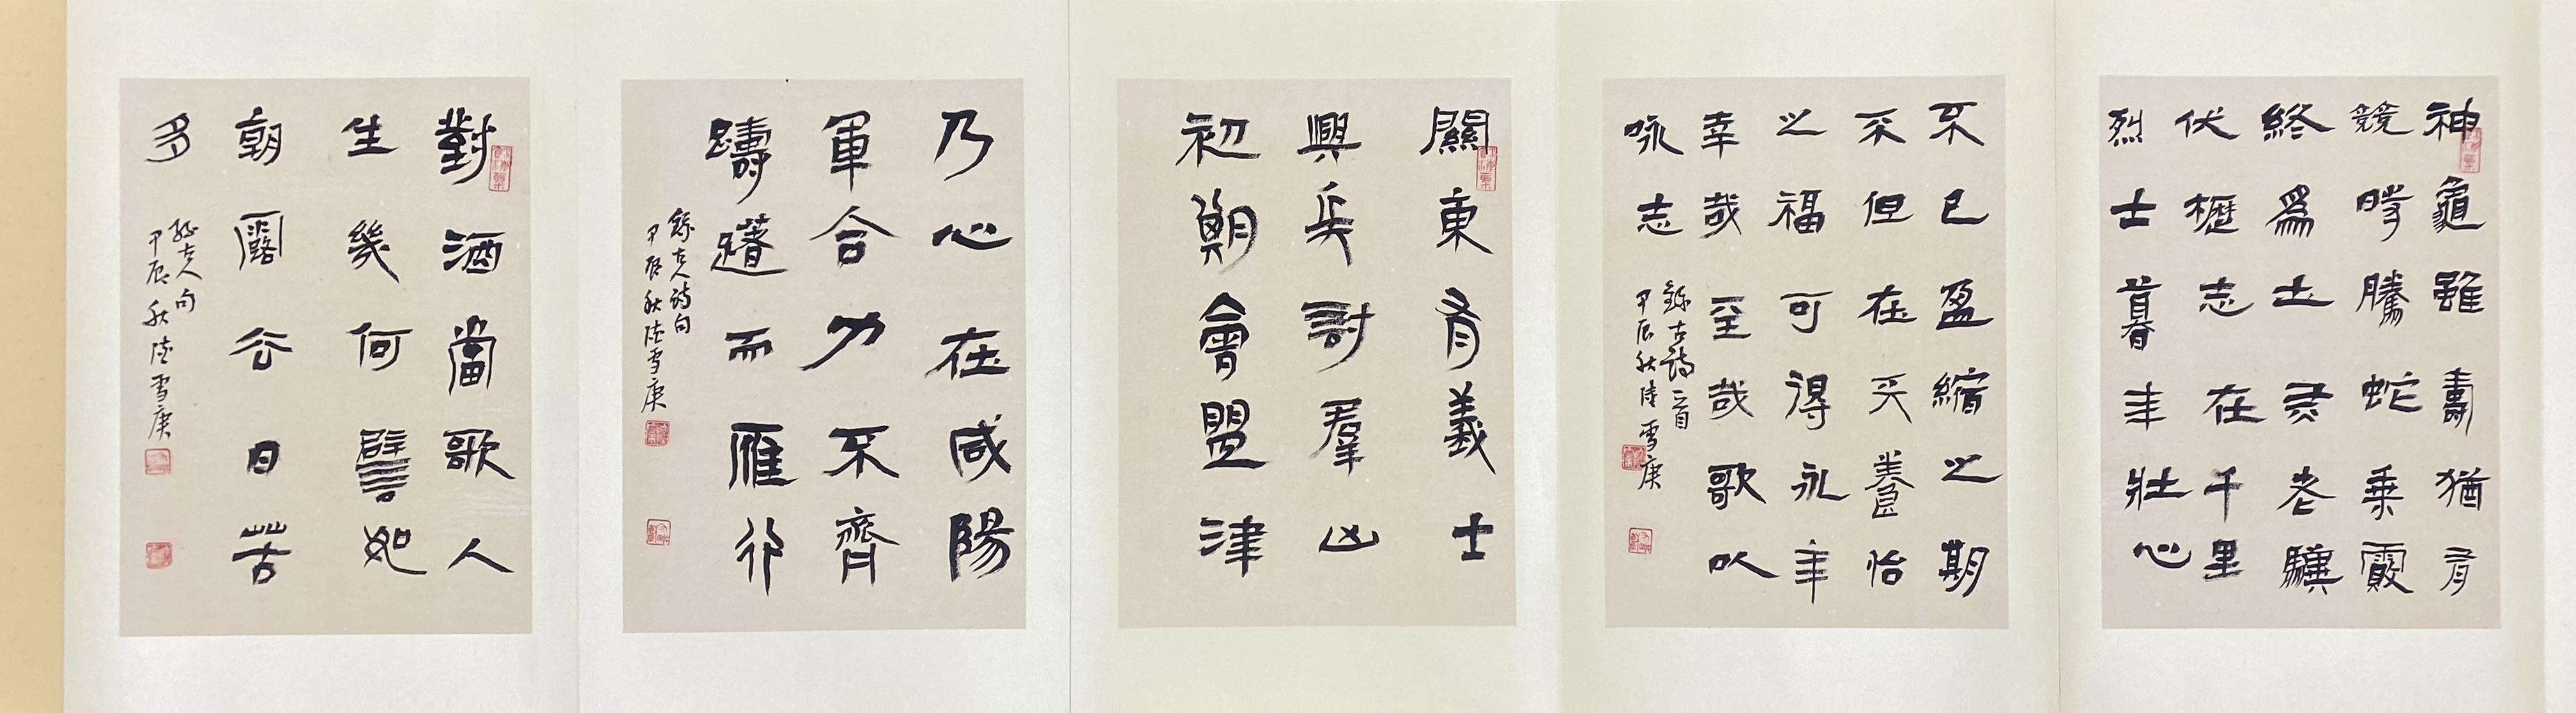 神龜雖壽猶有
競時騰蛇乘霞
終爲土灰老驥
伏櫪志在千里
烈士暮年壯心
不已盈縮之期
不但在天養怡
之福可得永年
幸哉至哉歌以
咏志
錄古詩一首
甲辰秋陸雪庚
關東有義士
興兵討羣凶
初期會盟津
乃心在咸陽
軍合力不齊
躊躇而雁行
錄古人詩句
甲辰秋陸雪庚
對酒當歌人
生幾何譬如
朝露去日苦
多
錄古人句
甲辰秋陸雪庚